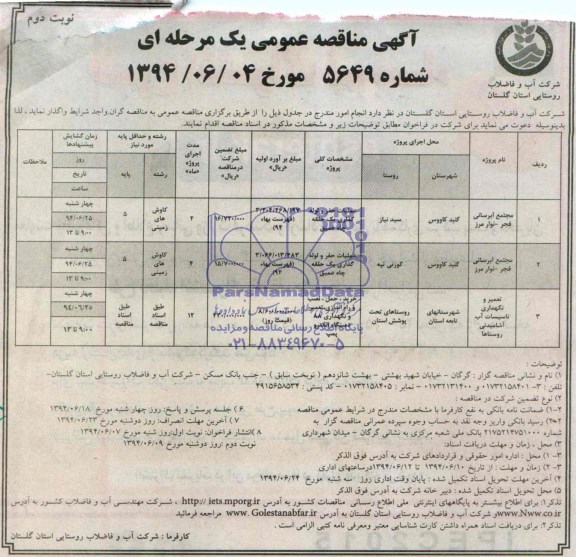 نوبت دوم
آگهی مناقصه عمومی یک مرحله ای
شماره ۵۶۴۹ مورخ ۱۳۹۴/۰۶/۰۴
شرکت آب و فاضلاب
روستایی استان گلستان
شرکت آب و فاضلاب روستایی استان گلستان در نظر دارد انجام امور مندرج در جدول ذیل را از طریق برگزاری مناقصه عمومی به مناقصه گران واجد شرایط واگذار نماید ، لذا
بدینوسیله دعوت می نماید برای شرکت در فراخوان مطابق توضیحات زیر و مشخصات مذکور در اسناد مناقصه اقدام نمایند.
ردیف نام پروژه محل اجرای پروژه شهرستان روستا مشخصات کلی پروژه مبلغ برآورد اولیه «ریال» مبلغ تضمین شرکت درمناقصه «ریال» مدت اجرای پروژه «ماه» رشته و حداقل پایه مورد نیاز رشته پایه زمان گشایش پیشنهادها روز تاریخ ساعت ملاحظات
۱ مجتمع آبرسانی فجر -نوار مرز گنبد کاووس سید نیاز گذاری یک حلقه (فهرست بهاء ۹۴) ۴ کاوش های زمینی ۵ چهار شنبه ۹۴/۰۶/۲۵ ۹:۰۰ تا ۱۳
۲ مجتمع آبرسانی فجر -نوار مرز گنبد کاووس گوزنی تپه عملیات حفر و لوله گذاری یک حلقه چاه عمیق (فهرست بهاء ۹۴) ۴ کاوش های زمینی ۵ چهار شنبه ۹۴/۰۶/۲۵ ۹:۰۰ تا ۱۳
۳ تعمیر و نگهداری تاسیسات آب آشامیدنی روستاها شهرستانهای تابعه استان روستاهای تحت پوشش استان خرید ، حمل ، نصب ۱۲ طبق اسناد مناقصه طبق اسناد مناقصه چهار شنبه ۹۴/۰۶/۲۵ ۹:۰۰ تا ۱۳
ParsNamadData
پایگاه اطلاع رسانی مناقصه و مزایده
۰۲۱-۸۸۳۴۹۶۷۰-۵
توضیحات :
۱) نام و نشانی مناقصه گزار : گرگان – خیابان شهید بهشتی – بهشت شانزدهم ( نوبخت سابق ) – جنب بانک مسکن – شرکت آب و فاضلاب روستایی استان گلستان–
تلفن : ۳– ۰۱۷۳۲۱۵۸۴۰۱ و ۰۱۷۳۲۱۳۱۴۰۰ – نمابر : ۰۱۷۳۲۱۵۸۴۰۵ – کد پستی : ۴۹۱۵۶۵۸۵۳۴
۲) نوع تضمین شرکت در مناقصه :
۱–۲) ضمانت نامه بانکی به نفع کارفرما با مشخصات مندرج در شرایط عمومی مناقصه
۲–۲) رسید بانکی واریز وجه نقد به حساب وجوه سپرده عمرانی مناقصه گزار به
شماره ۲۱۷۵۲۱۴۷۵۱۰۰۰ بانک ملی شعبه مرکزی به نشانی گرگان – میدان شهرداری
۳) محل ، زمان و مهلت دریافت اسناد:
۱–۳) محل : اداره امور حقوقی و قراردادهای شرکت به آدرس فوق الذکر
۲–۳) زمان و مهلت : از تاریخ ۱۳۹۴/۰۶/۱۰ تا ۱۳۹۴/۰۶/۱۲ درساعتهای اداری
۴) آخرین مهلت تحویل اسناد تکمیل شده : پایان وقت اداری روز سه شنبه مورخ ۱۳۹۴/۰۶/۲۴
۵) محل تحویل اسناد تکمیل شده : دبیر خانه شرکت به آدرس فوق الذکر
۶) جلسه پرسش و پاسخ: روز چهار شنبه مورخ ۱۳۹۴/۰۶/۱۸
۷) آخرین مهلت انصراف: روز دوشنبه مورخ ۱۳۹۴/۰۶/۲۳
۸) انتشار فراخوان: نوبت اول: روز شنبه مورخ ۱۳۹۴/۰۶/۰۷
نوبت دوم: روز دوشنبه مورخ ۱۳۹۴/۰۶/۰۹
تذکر۱: برای اطلاع بیشتر به پایگاههای اینترنتی ملی اطلاع رسانی مناقصات کشور به آدرس http:// iets.mporg.ir ، شرکت مهندسی آب و فاضلاب کشور به آدرس
www.Nww.co.ir و شرکت آب و فاضلاب روستایی استان گلستان به آدرس www. Golestanabfar.ir مراجعه فرمائید
تذکر۲: برای دریافت اسناد همراه داشتن کارت شناسایی معتبر ومعرفی نامه کتبی الزامی است .
کارفرما : شرکت آب و فاضلاب روستایی استان گلستان